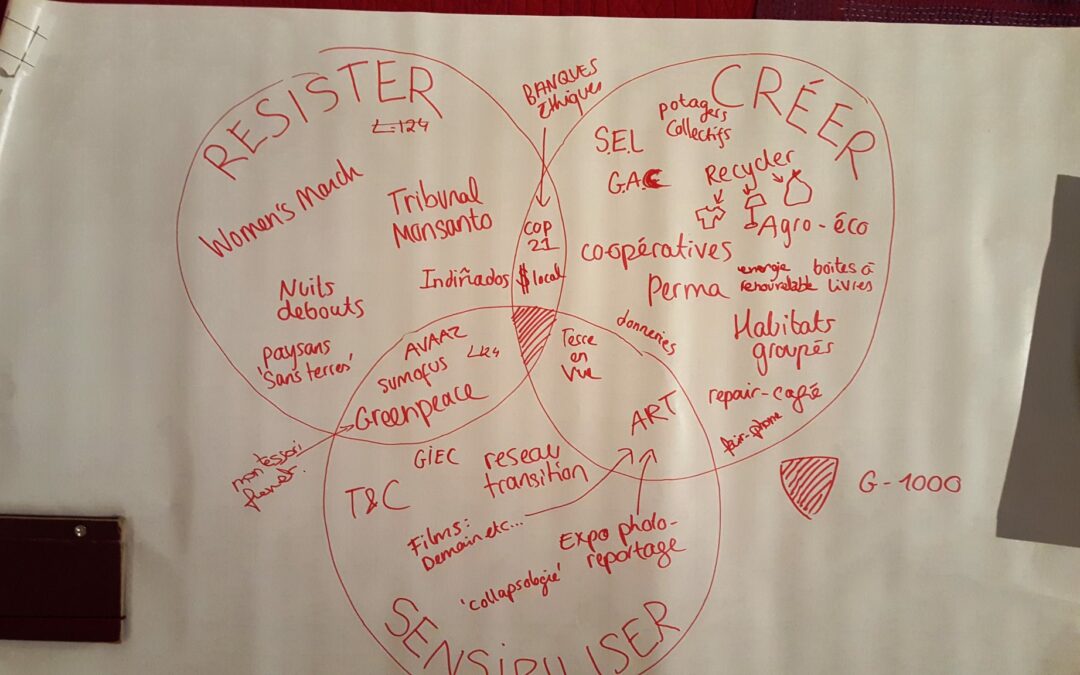 RESISTER
L-124
Women's March
Tribunal
Monsanto
Indiñados
Nuits
debouts
paysans
'Sans terres'
BANQUES
éthiques
COP
21
$ local
CRÉER
potagers
collectifs
S.E.L
G.A.C
Recycler
Agro-éco
co-opératives
Perma
energie
renouvelable
boites à
livres
Habitats
groupés
donneries
repair-café
fair-phone
AVAAZ
L124
sumofus
Greenpeace
montessori
Terre
en
vue
ART
GIEC
reseau
transition
T&C
Films:
Demain etc...
Expo photo-
reportage
'collapsologie'
SENSIBILISER
G-1000